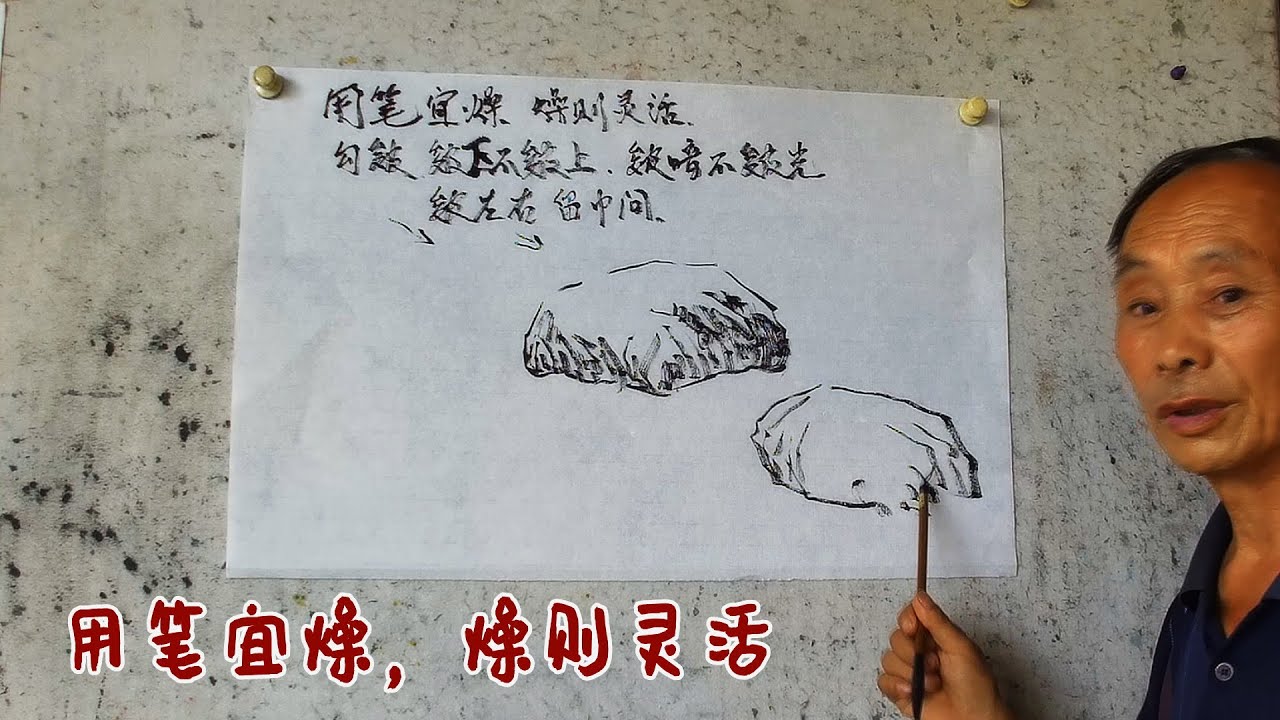 用笔宜燥 燥则灵活.
勾皴 皴下不皴上.皴暗不皴光
皴左右 留中间.
用笔宜燥，燥则灵活